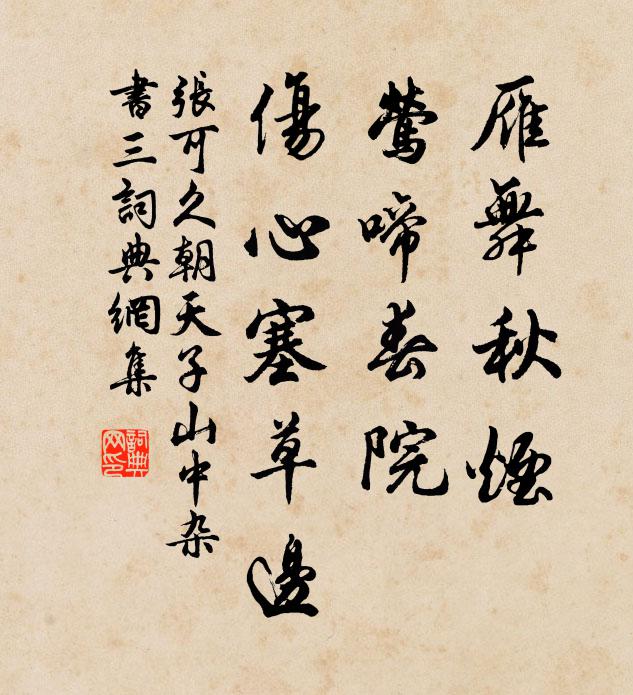 雁舞秋煙
鶯啼春院
傷心塞草邊
張可久朝天子山中杂
書三詞典網集
詞典
网印